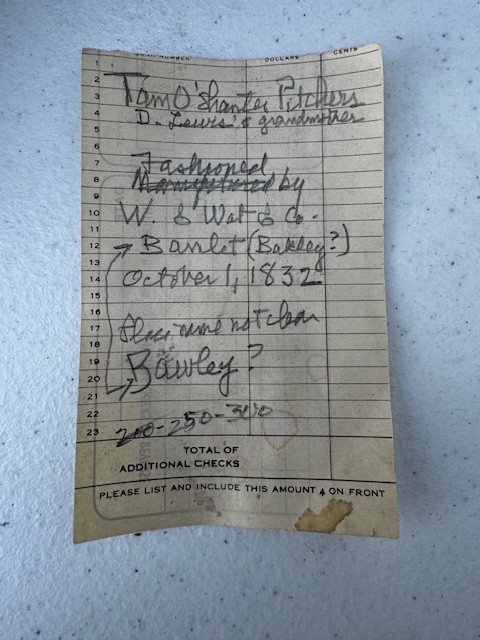 DOLLARS CENTS
1
2
3 Tam O'Shanter Pitchers
4 D. Lewis's grandmother
5
6
7 Fashioned
8 Manufactured by
9
10 W. & Wat & Co.
11
12 → Banlet (Bakley?)
13
14 October 1, 1832
15
16
17 Place name not clear
18
19 Bawley?
20
21
22
23 200-250-300
TOTAL OF
ADDITIONAL CHECKS
PLEASE LIST AND INCLUDE THIS AMOUNT ON FRONT